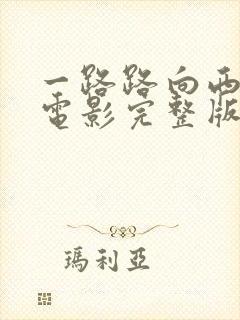 一路路向西
電影完整版
瑪利亞